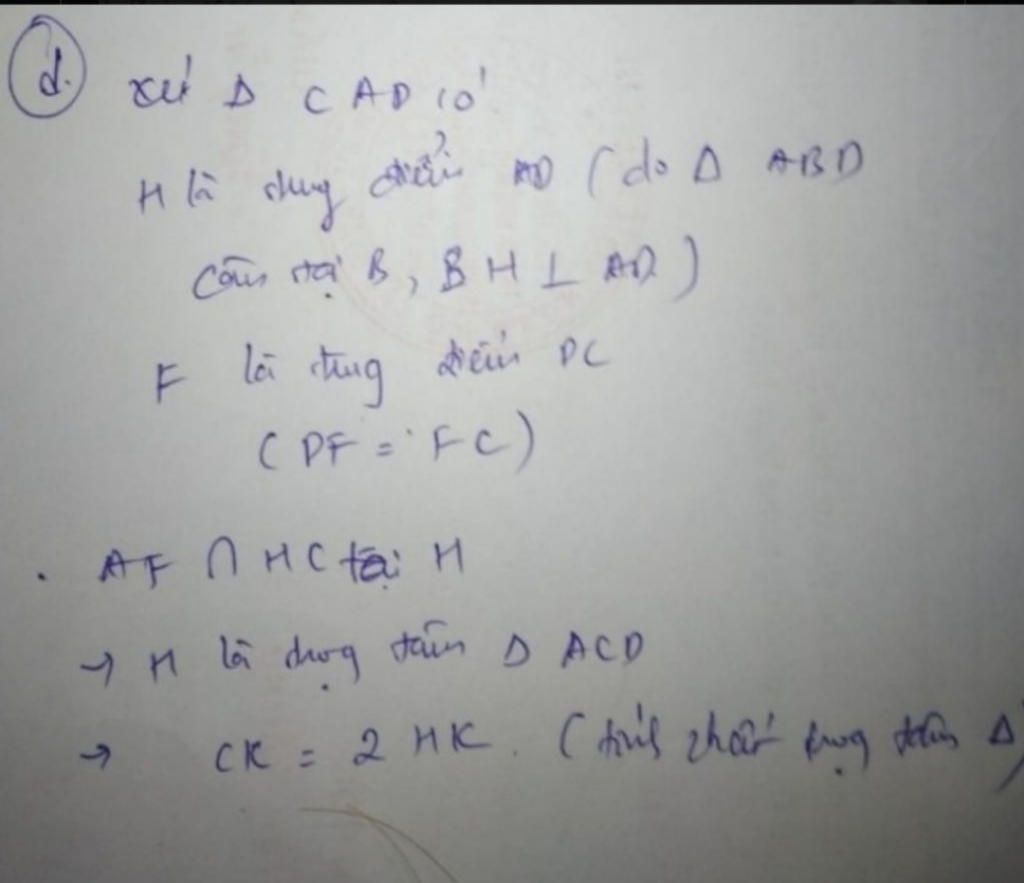 d. xét Δ CAD có
H là trung điểm AD (do Δ ABD
cân tại B, BH ⊥ AD)
F là trung điểm DC
(DF = FC)
. AF ∩ HC tại H
→ H là trọng tâm Δ ACD
→ CK = 2 HK. (tính chất trọng tâm Δ)